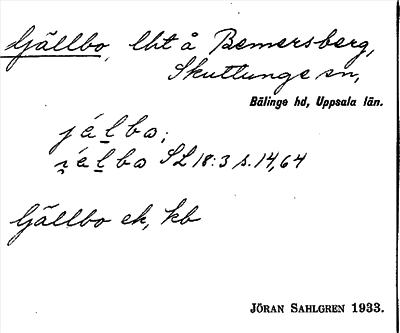 Gällbo, lht å Bemersberg,
Skuttunge sn,
Bälinge hd, Uppsala län.
jälbo;
i̯älbo SL 18:3 s. 14,64
Gällbo ek, kb
JÖRAN SAHLGREN 1933.